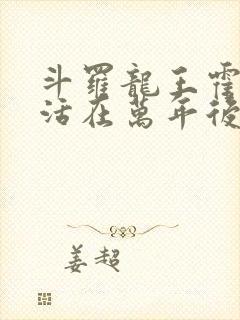 斗羅龍王霍
活在萬年後
姜超